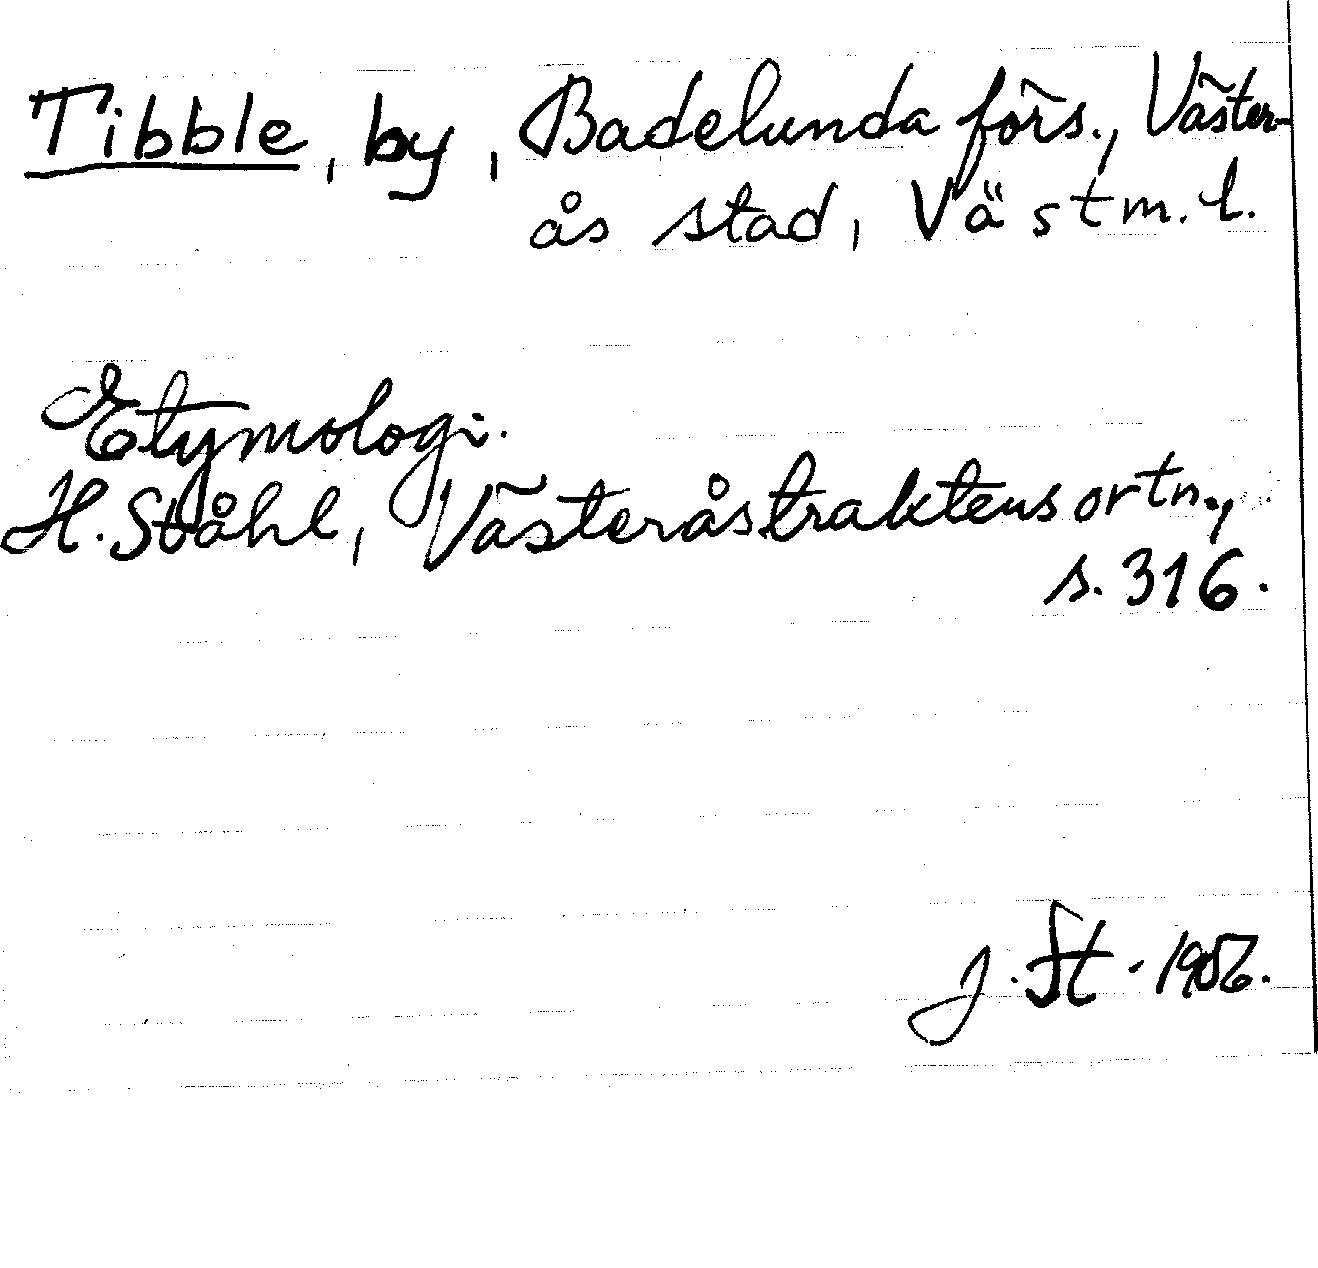 Tibble, by, Badelunda förs., Väster-
ås stad, Västm. l.
Etymologi.
H. Ståhl, Västeråstraktens ortn.,
s. 316.
J. St. 1956.